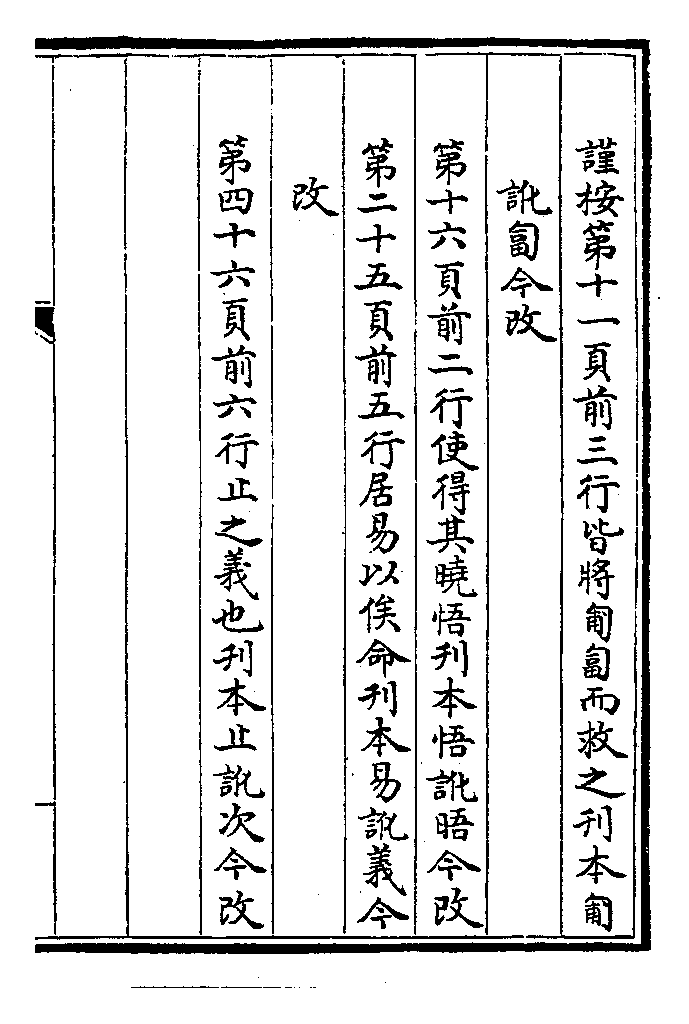 謹桉第十一頁前三行皆將匍匐而救之刋本匍
訛匐今改
第十六頁前二行使得其曉悟刋本悟訛晤今改
第二十五頁前五行居易以俟命刋本易訛義今
改
第四十六頁前六行止之義也刋本止訛次今改